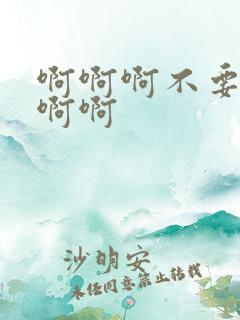 啊啊啊不要
啊啊
沙明安
未经同意禁止转载